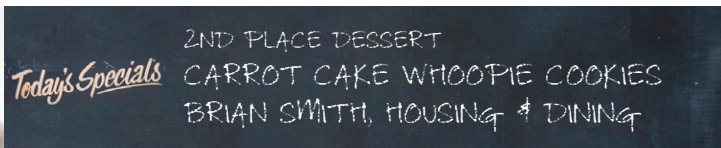 Today's Specials
2ND PLACE DESSERT
CARROT CAKE WHOOPIE COOKIES
BRIAN SMITH, HOUSING & DINING